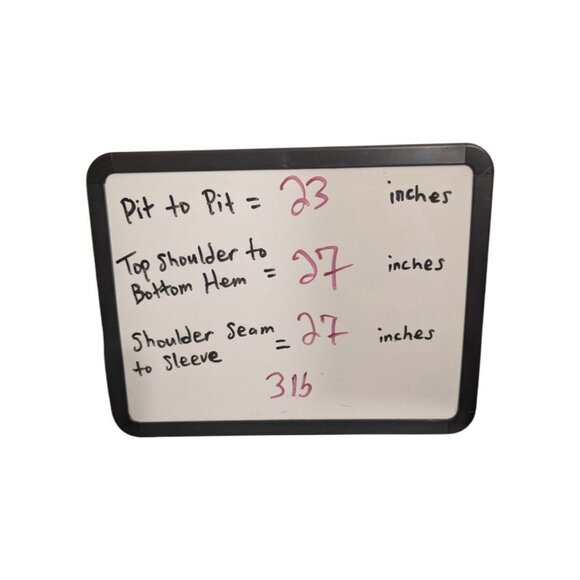 Pit to Pit = 23 inches
Top Shoulder to
Bottom Hem = 27 inches
Shoulder Seam
to Sleeve = 27 inches
3lb